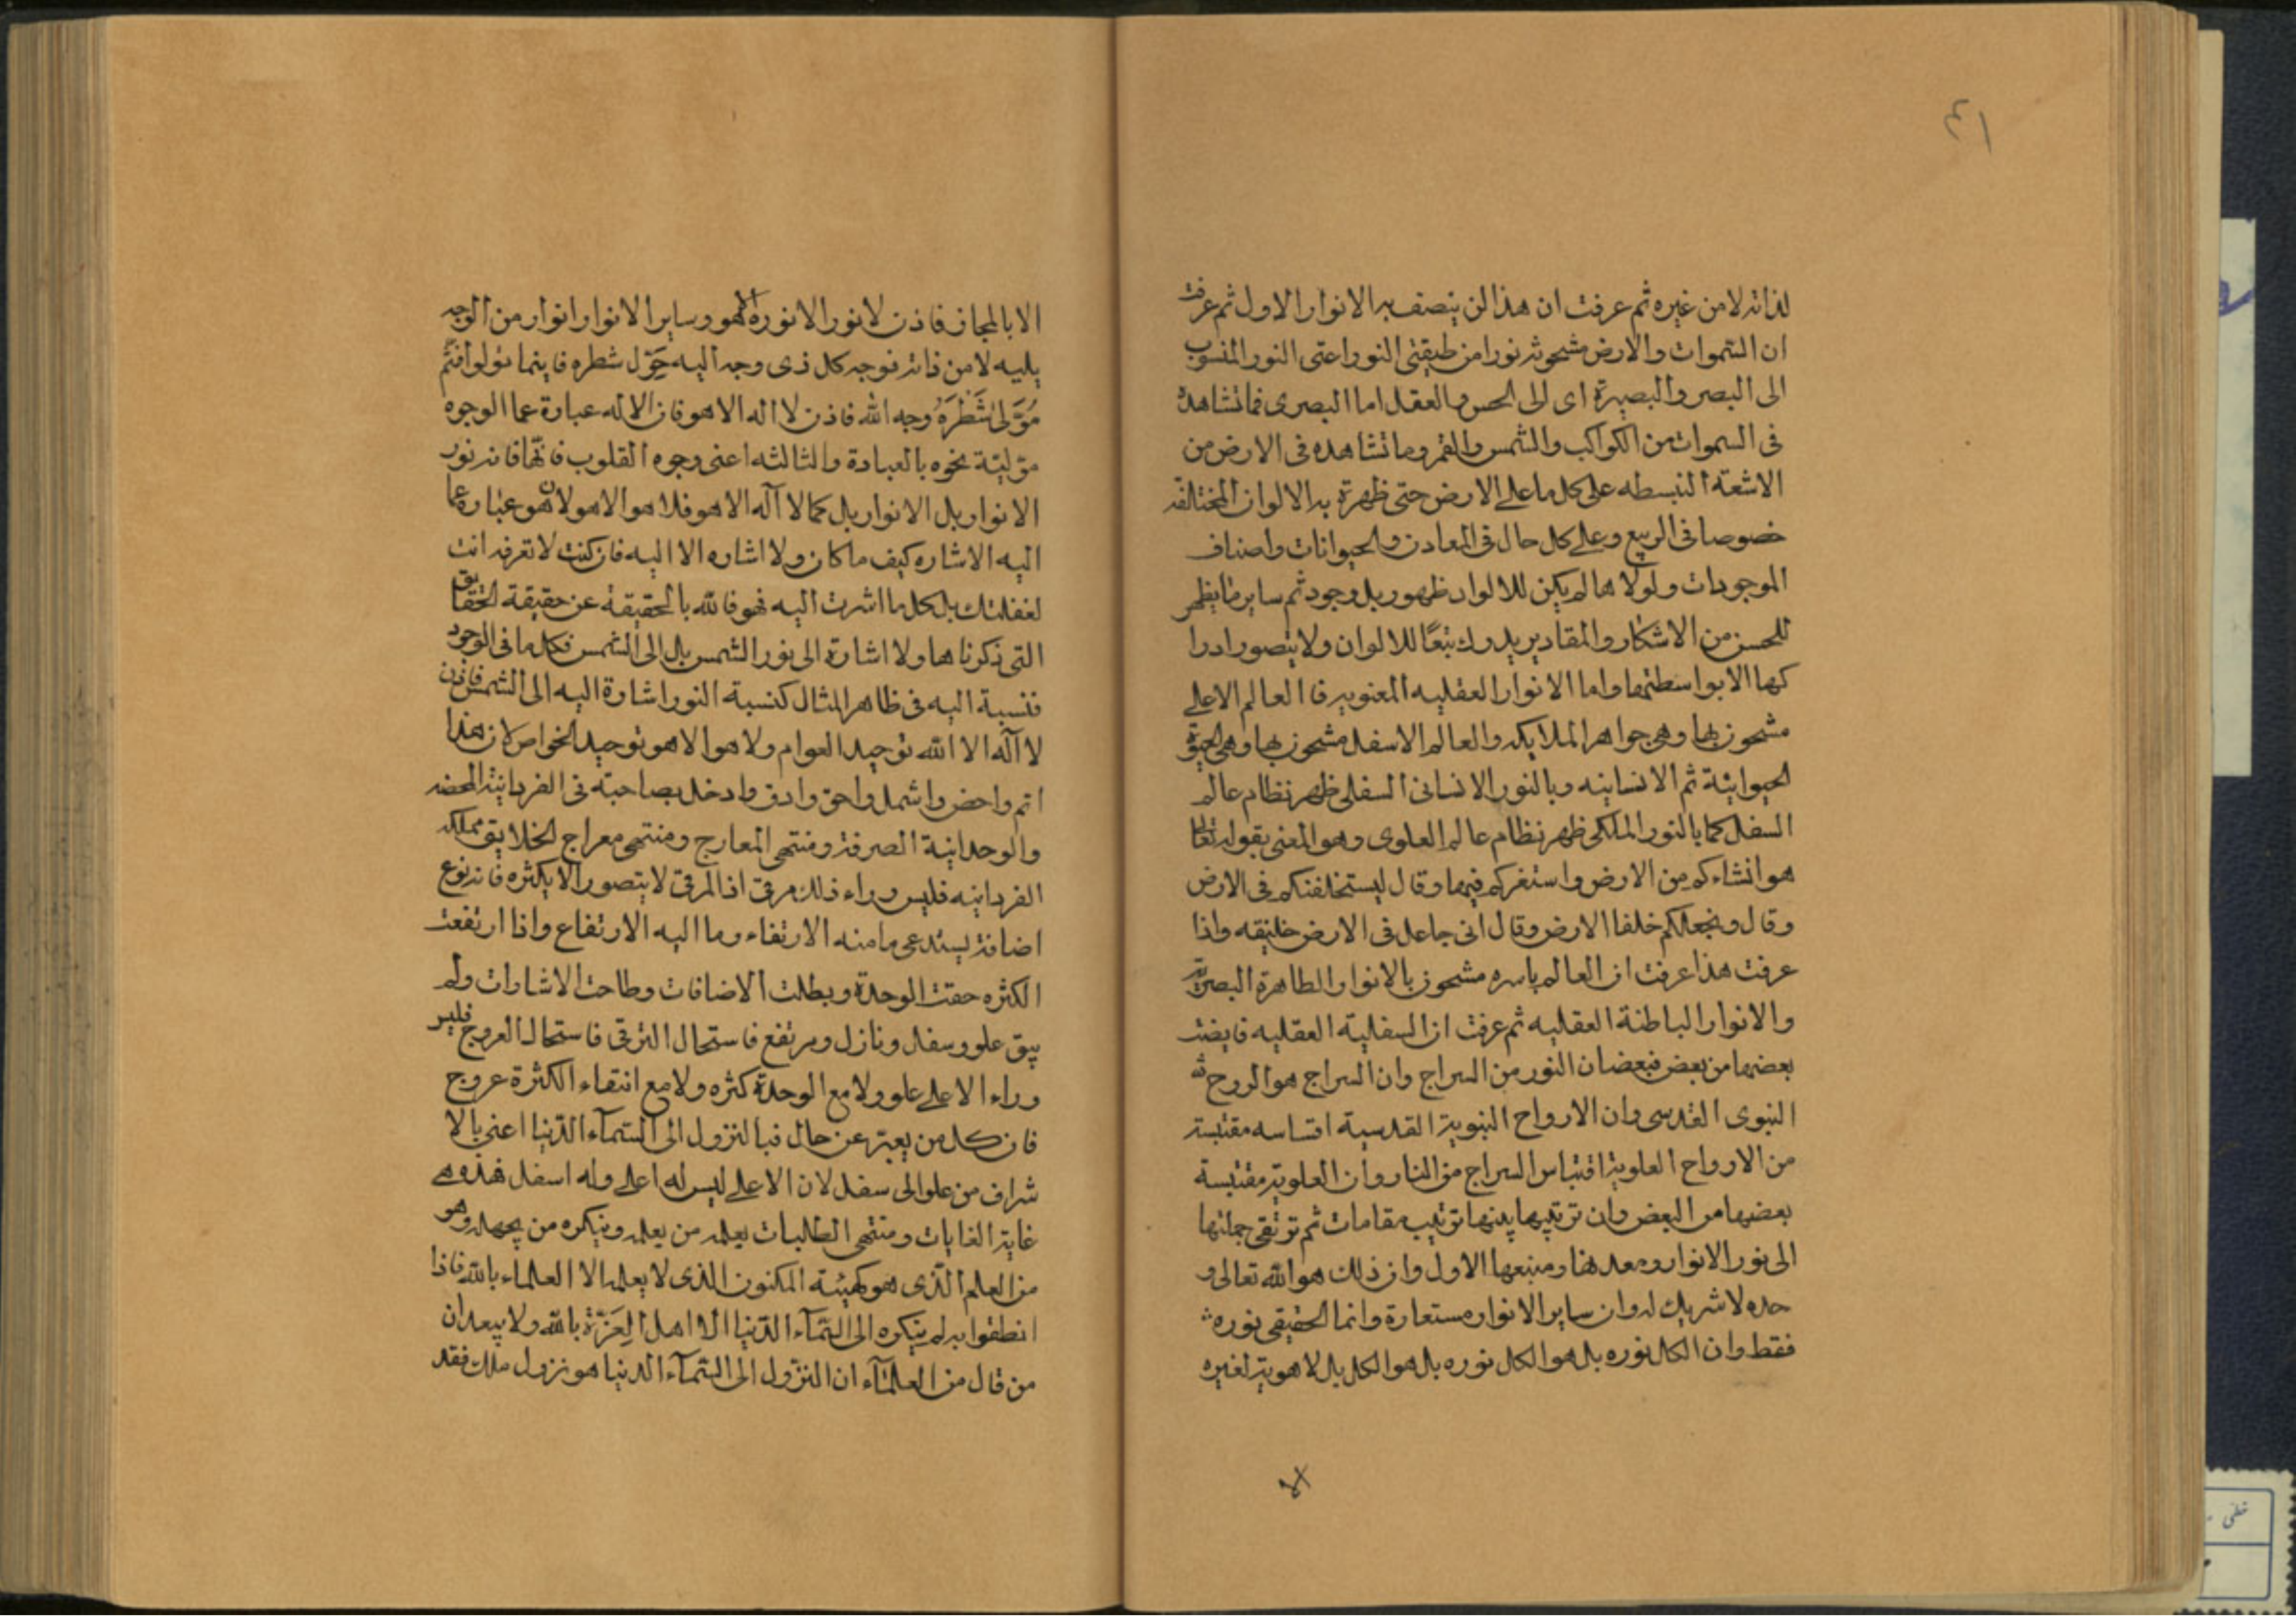 ٤١
لذاته لا من غيره ثم عرفت ان هذا لن ينصف به الانوار الاول ثم عرفت
ان السّموات والارض مشحونة نورا من طبقتى النور اعنى النور المنسوب
الى البصر والبصيرة اى الى الحس والعقل اما البصرى فما تشاهده
فى السموات من الكواكب والشمس والقمر وما تشاهده فى الارض من
الاشعة المنبسطه على كل ما على الارض حتى ظهرة به الالوان المختلفة
خصوصا فى الربيع وعلى كل حال فى المعادن والحيوانات واصناف
الموجودات ولولا ها لم يكن للالوان ظهور بل وجود ثم ساير ما يظهر
للحسن من الاشكار والمقادير يدرك تبعًا للالوان ولا يتصور ادرا
كها الا بواسطتها واما الانوار العقليه المعنويه فا العالم الاعلى
مشحون بها وهى جواهر الملايكه والعالم الاسفل مشحون بها وهى الحيوة
الحيوانية ثم الانسانيه وبالنور الانسانى السفلى ظهر نظام عالم
السفل كما بالنور الملكى ظهر نظام عالم العلوى وهو المعنى بقوله تعالى
هو انشاءكم من الارض واستغركم فيها وقال ليستخلفنكم فى الارض
وقال ونجعلكم خلفا الارض وقال انى جاعل فى الارض خليفه واذا
عرفت هذا عرفت ان العالم باسره مشحون بالانوار الطاهرة البصرية
والانوار الباطنة العقليه ثم عرفت ان السفلية العقليه فايضة
بعضها من بعض فبعضان النور من السراج وان السراج هو الروح
النبوى القدسى وان الارواح النبوية القدسية اقتاسه مقتبسة
من الارواح العلوية اقتباس السراج من النار وان العلوية مقتبسة
بعضها من البعض وان ترتيبها بينها ترتيب مقامات ثم ترتقى جملتها
الى نور الانوار ومعدنها ومنبعها الاول وان ذلك هو الله تعالى و
حده لا شريك له وان ساير الانوار مستعارة وانما الحقيقى نوره
فقط وان الكل نوره بل هو الكل نوره بل هو الكل بل لا هوية لغيره
الا
الا بالمجاز فاذن لا نور الا نوره الا هو وساير الانوار انوار من الوجه
يليه لا من ذاته فوجه كل ذى وجه اليه حَوّل شطره فاينما تولوا فثم
مُوَلّى شَطْرَهُ وجه الله فاذن لا اله الا هو فان الاله عبارة عما الوجوه
مؤلية نحوه بالعبادة والثالثه اعنى وجوه القلوب فانها فانه نور
الانوار بل الانوار بل كما لا آله الا هو فلا هو الا هو لان هو عبارة عما
اليه الاشاره كيف ما كان ولا اشاره الا اليه فان كنت لا تعرفه انت
لغفلتك بل كل ما اشرت اليه فهو فالله بالحقيقة عن حقيقة الحقايق
التى ذكرناها ولا اشارة الى نور الشمس بل الى الشمس فكل ما فى الوجود
فنسبة اليه فى ظاهر المثال كنسبة النور اشارة اليه الى الشمس فاذن
لا آله الا الله توحيد العوام ولا هو الا هو توحيد الخواص لان هذا
اتم واخض واشمل واحق وادق وادخل بصاحبته فى الفردانية المحضه
والوحدانية الصرفة ومنتهى المعارج ومنتهى معراج الخلايق مملكه
الفردانيه فليس وراء ذلك مرقى اذ المرقى لا يتصور الا بكثره فانه نوع
اضافة يستدعى ما منه الارتفاء وما اليه الارتفاع واذا ارتفعت
الكثره حقت الوحدة وبطلت الاضافات وطاحت الاشارات ولم
يبق علو وسفل ونازل ومرتفع فاستحال الترقى فاستحال العروج فليس
وراء الاعلى علو ولا مع الوحدة كثره ولا مع انتفاء الكثرة عروج
فان كل من يعبّر عن حال فبالنزول الى السّمآء الدّنيا اعنى بالا
شراف من علو الى سفل لان الاعلى ليس له اعلى وله اسفل فهذه هى
غاية الغايات ومنتهى الطالبات يعلمه من يعلمه وينكره من يجهله وهو
من العلم الّذى هو كهيئة المكنون الذى لا يعلمه الا العلماء بالله فاذا
انطقوا به لم ينكره الى السّمآء الدّنيا الا اهل الِعَزّة بالله ولا يبعد ان
من قال من العلمآء ان النزول الى السّمآء الدنيا هو نزول ملك فقد
خطى